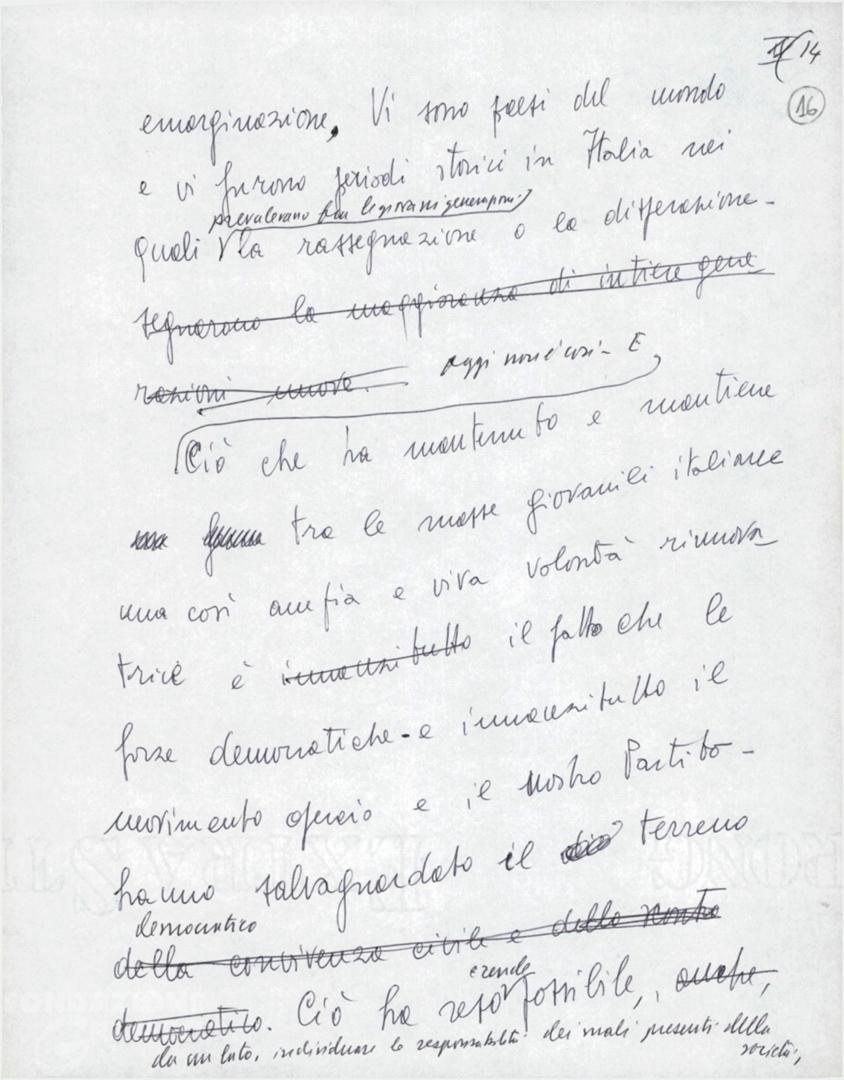 14
16
emarginazione, Vi sono paesi del mondo
e vi furono periodi storici in Italia nei
prevalevano fra le giovani generazioni
quali la rassegnazione o la disperazione
segnarono la maggioranza di intiere gene
razioni nuove.
Oggi non è così - E
Ciò che ha mantenuto e mantiene
tra le masse giovanili italiane
una così ampia e viva volontà rinnova
trice è innanzitutto il fatto che le
forze democratiche - e innanzitutto il
movimento operaio e il nostro Partito -
hanno salvaguardato il terreno
democratico
della convivenza civile e della
democratico. Ciò ha reso possibile, anche,
e rende
da un lato, individuare le responsabilità dei mali presenti della
società,